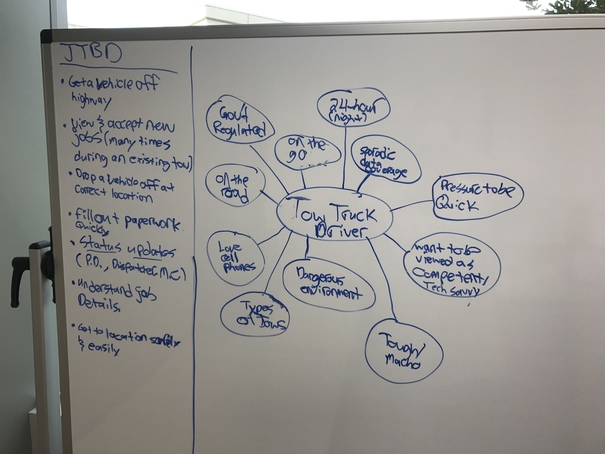 JTBD
• Get a vehicle off
highway
• View & accept new
jobs (many times
during an existing tow)
• Drop a vehicle off at
correct location
• fill out paperwork
Quickly
• Status updates
(P.D., Dispatcher, M.C)
• understand job
Details
• Get to location safely
& easily
Gov't
Regulated
on the
go
24-hour
(nights)
sporadic
data
coverage
Pressure to be
Quick
want to be
viewed as
Competent/
Tech savvy
Tough/
Macho
Dangerous
environment
Types
of Tows
Love
cell
phones
on the
road
Tow Truck
Driver